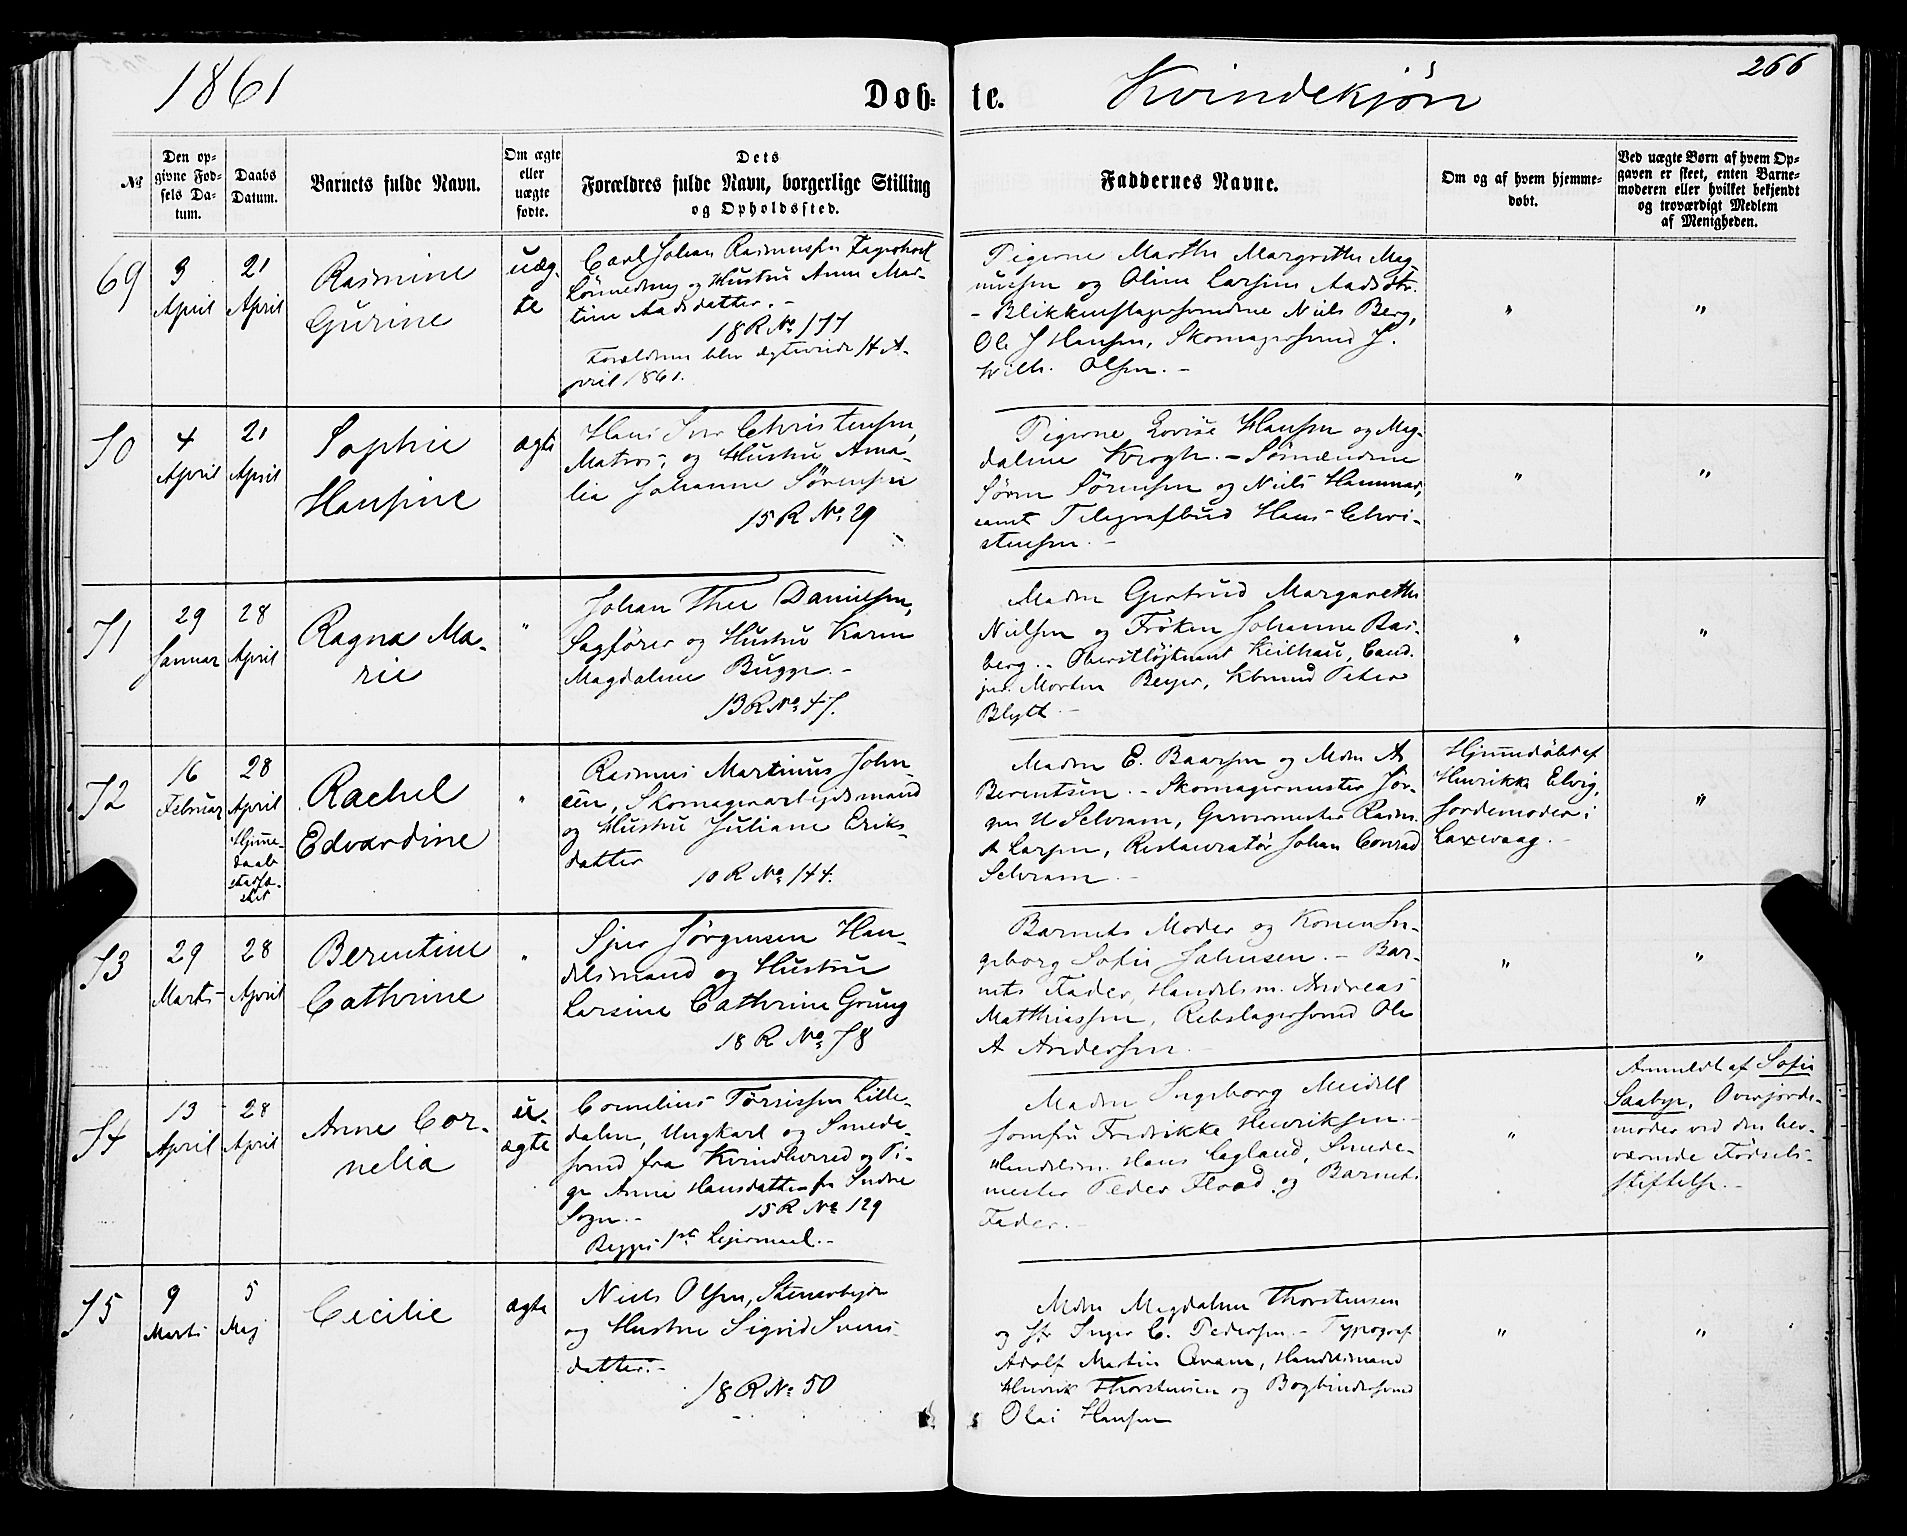 1861
Døb-
te.
Kvindekjön
266
№
Den op-
givne Fød-
sels Da-
tum.
Daabs
Datum.
Barnets fulde Navn.
Om ægte
eller
uægte
fødte.
Dets
Forældres fulde Navn, borgerlige Stilling
og Opholdssted.
Faddernes Navne.
Om og af hvem hjemme-
døbt.
Ved uægte Børn af hvem Op-
gaven er skeet, enten Barne-
moderen eller hvilket bekjendt
og troværdigt Medlem
af Menigheden.
69
3
April
21
April
Rasmine
Gurine
uæg-
te
Carl Johan Rasmussen
og Hustru Anne Mar-
tine Aadsdatter. -
18 R No 177
Forældrene blev ægteviede 14 A-
pril 1861.
Pigerne Marthe Margrethe Mag-
nusen og Oline Larsine Aadsdtr.
- Blikkenslagersvendene Niels Berg,
Ole J Hansen, Skomagersvend J.
Wilh. Olsen. -
"
"
70
4
April
21
April
Sophie
Hansine
ægte
Hans Iver Christensen,
Matros, og Hustru Ama-
lia Johanne Sørensen
15 R No 29
Pigerne Lovise Hansen og Mag-
dalene Krogh. - Sømændene
Søren Sørensen og Niels Hammer,
samt Telegrafbud Hans Chri-
stensen. -
"
"
71
29
Januar
28
April
Ragna Ma-
rie
"
Johan Thue Danielsen,
Sagfører og Hustru Karen
Magdalene Bugge. -
13 R No 47.
Madm Gertrud Margarethe
Nielsen og Frøken Johanne Bas-
berg. - Oberstløjtnant Keilhau, Cand.
jur. Morten Beyer, Kbmd Peter
Blytt -
"
"
72
16
Februar
28
April
Hjemme-
daab
stadfæ-
stet
Rachel
Edvardine
"
Rasmus Martinus John-
sen, Skomagerarbejdsmand
og Hustru Juliane Eriks-
datter
10 R No 144.
Madm E. Baarsen og Mdm A
Berentsen. - Skomagermester Jör-
gen H Selvram, Garvermester Rasm.
A Larsen, Restauratør Johan Conrad
Selvram -
Hjemmedøbt af
Henrikke Elvig,
Jordemoder i
Laxevaag. -
"
73
29
Marts
28
April
Berentine
Cathrine
"
Sjur Jörgensen Han-
delsmand og Hustru
Larsine Cathrine Grung
18 R No 78
Barnets Moder og Konen In-
geborg Sofie Johnsen. - Bar-
nets Fader, Handelsm. Andreas
Matthiassen, Rebslagersvend Ole
A Andersen -
"
"
74
13
April
28
April
Anne Cor-
nelia
u-
ægte
Cornelius Tørrissen Lille-
dalen, Ungkarl og Smede-
svend fra Kvindherred og Pi-
ge Anne Hansdatter fr Indre
Sogn. -
15 R No 129
Begges 1ste Lejermaal. -
Madm Ingeborg Meidell
Jomfru Fredrikke Henriksen. -
Handelsm. Hans Lagland, Smede-
mester Peder Flood, og Barnets
Fader. -
"
Anmeldt af Sofie
Saabye, Overjorde-
moder ved den her-
værende Fødsels-
stiftelse. -
75
9
Marts
5
Maj
Cecilie
ægte
Niels Olsen, Stenarbejder
og Hustru Sigrid Svens-
datter. -
18 R No 50
Mdm Magdalene Thorstensen
og Jfr Inger C. Pedersen. - Typograf
Adolf Martin Qvam, Handelsmand
Henrik Thorstensen og Bogbindersvend
Olai Hansen
"
"